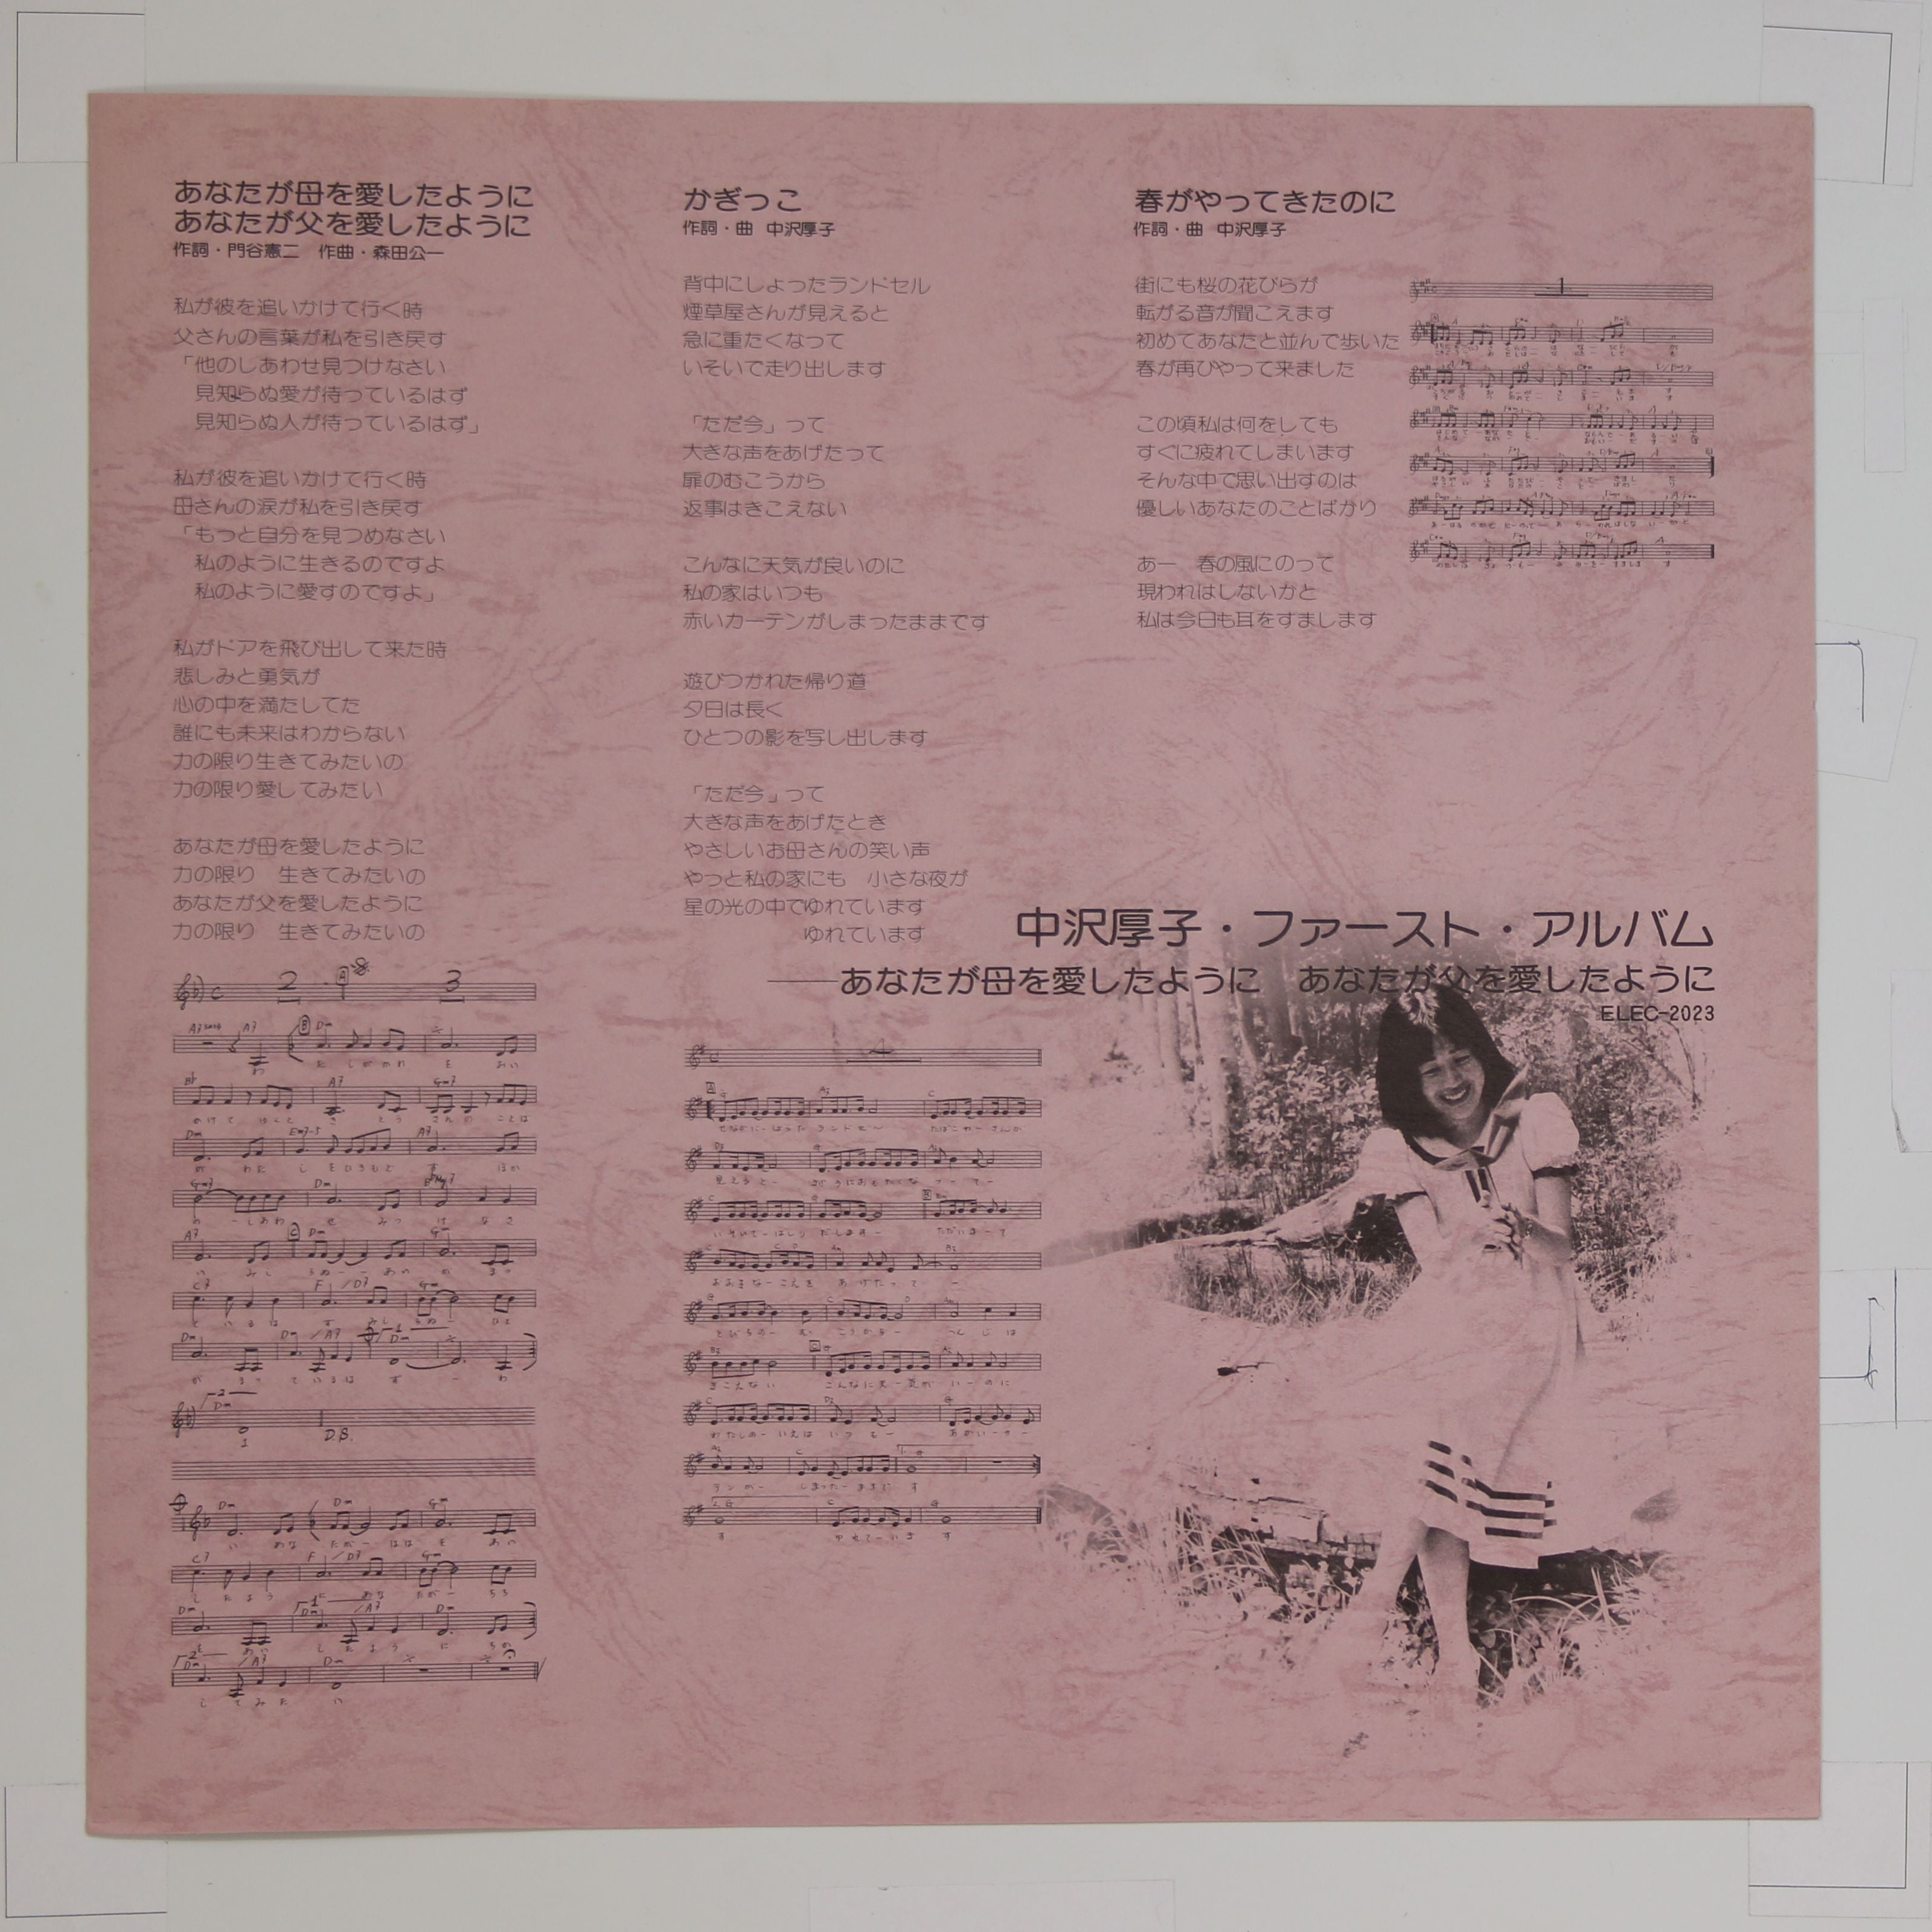 あなたが母を愛したように
あなたが父を愛したように
作詞・門谷憲二　作曲・森田公一
私が彼を追いかけて行く時
父さんの言葉が私を引き戻す
「他のしあわせ見つけなさい
見知らぬ愛が待っているはず
見知らぬ人が待っているはず」
私が彼を追いかけて行く時
母さんの涙が私を引き戻す
「もっと自分を見つめなさい
私のように生きるのですよ
私のように愛すのですよ」
私がドアを飛び出して来た時
悲しみと勇気が
心の中を満たしてた
誰にも未来はわからない
力の限り生きてみたいの
力の限り愛してみたい
あなたが母を愛したように
力の限り　生きてみたいの
あなたが父を愛したように
力の限り　生きてみたいの
かぎっこ
作詞・曲　中沢厚子
背中にしょったランドセル
煙草屋さんが見えると
急に重たくなって
いそいで走り出します
「ただ今」って
大きな声をあげたって
扉のむこうから
返事はきこえない
こんなに天気が良いのに
私の家はいつも
赤いカーテンがしまったままです
遊びつかれた帰り道
夕日は長く
ひとつの影を写し出します
「ただ今」って
大きな声をあげたとき
やさしいお母さんの笑い声
やっと私の家にも　小さな夜が
星の光の中でゆれています
ゆれています
春がやってきたのに
作詞・曲　中沢厚子
街にも桜の花びらが
転がる音が聞こえます
初めてあなたと並んで歩いた
春が再びやって来ました
この頃私は何をしても
すぐに疲れてしまいます
そんな中で思い出すのは
優しいあなたのことばかり
あー　春の風にのって
現われはしないかと
私は今日も耳をすまします
中沢厚子・ファースト・アルバム
——あなたが母を愛したように　あなたが父を愛したように
ELEC-2023